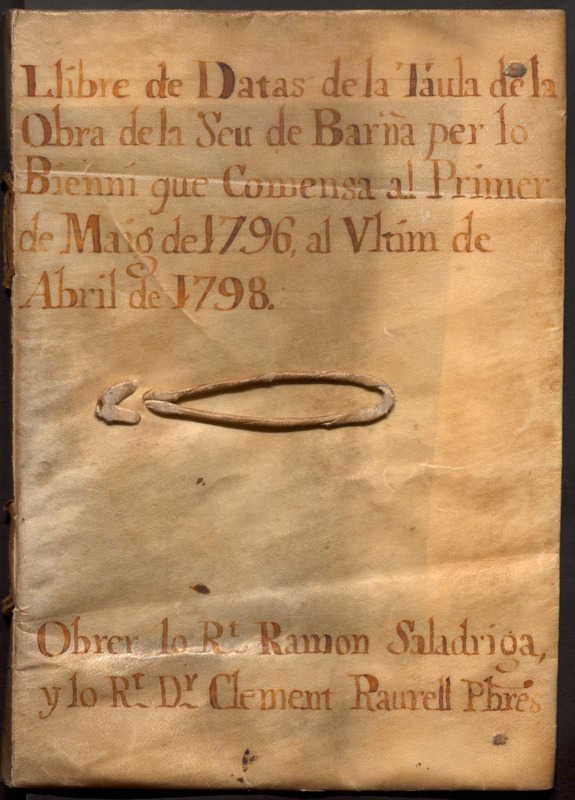 Llibre de Datas de la Táula de la
Obra de la Seu de Barña per lo
Bienni que Comensa al Primer
de Maig de 1796, al Vltim de
Abril de 1798.
Obrer lo Rt. Ramon Saladriga,
y lo Rt. Dr. Clement Raurell Pbres